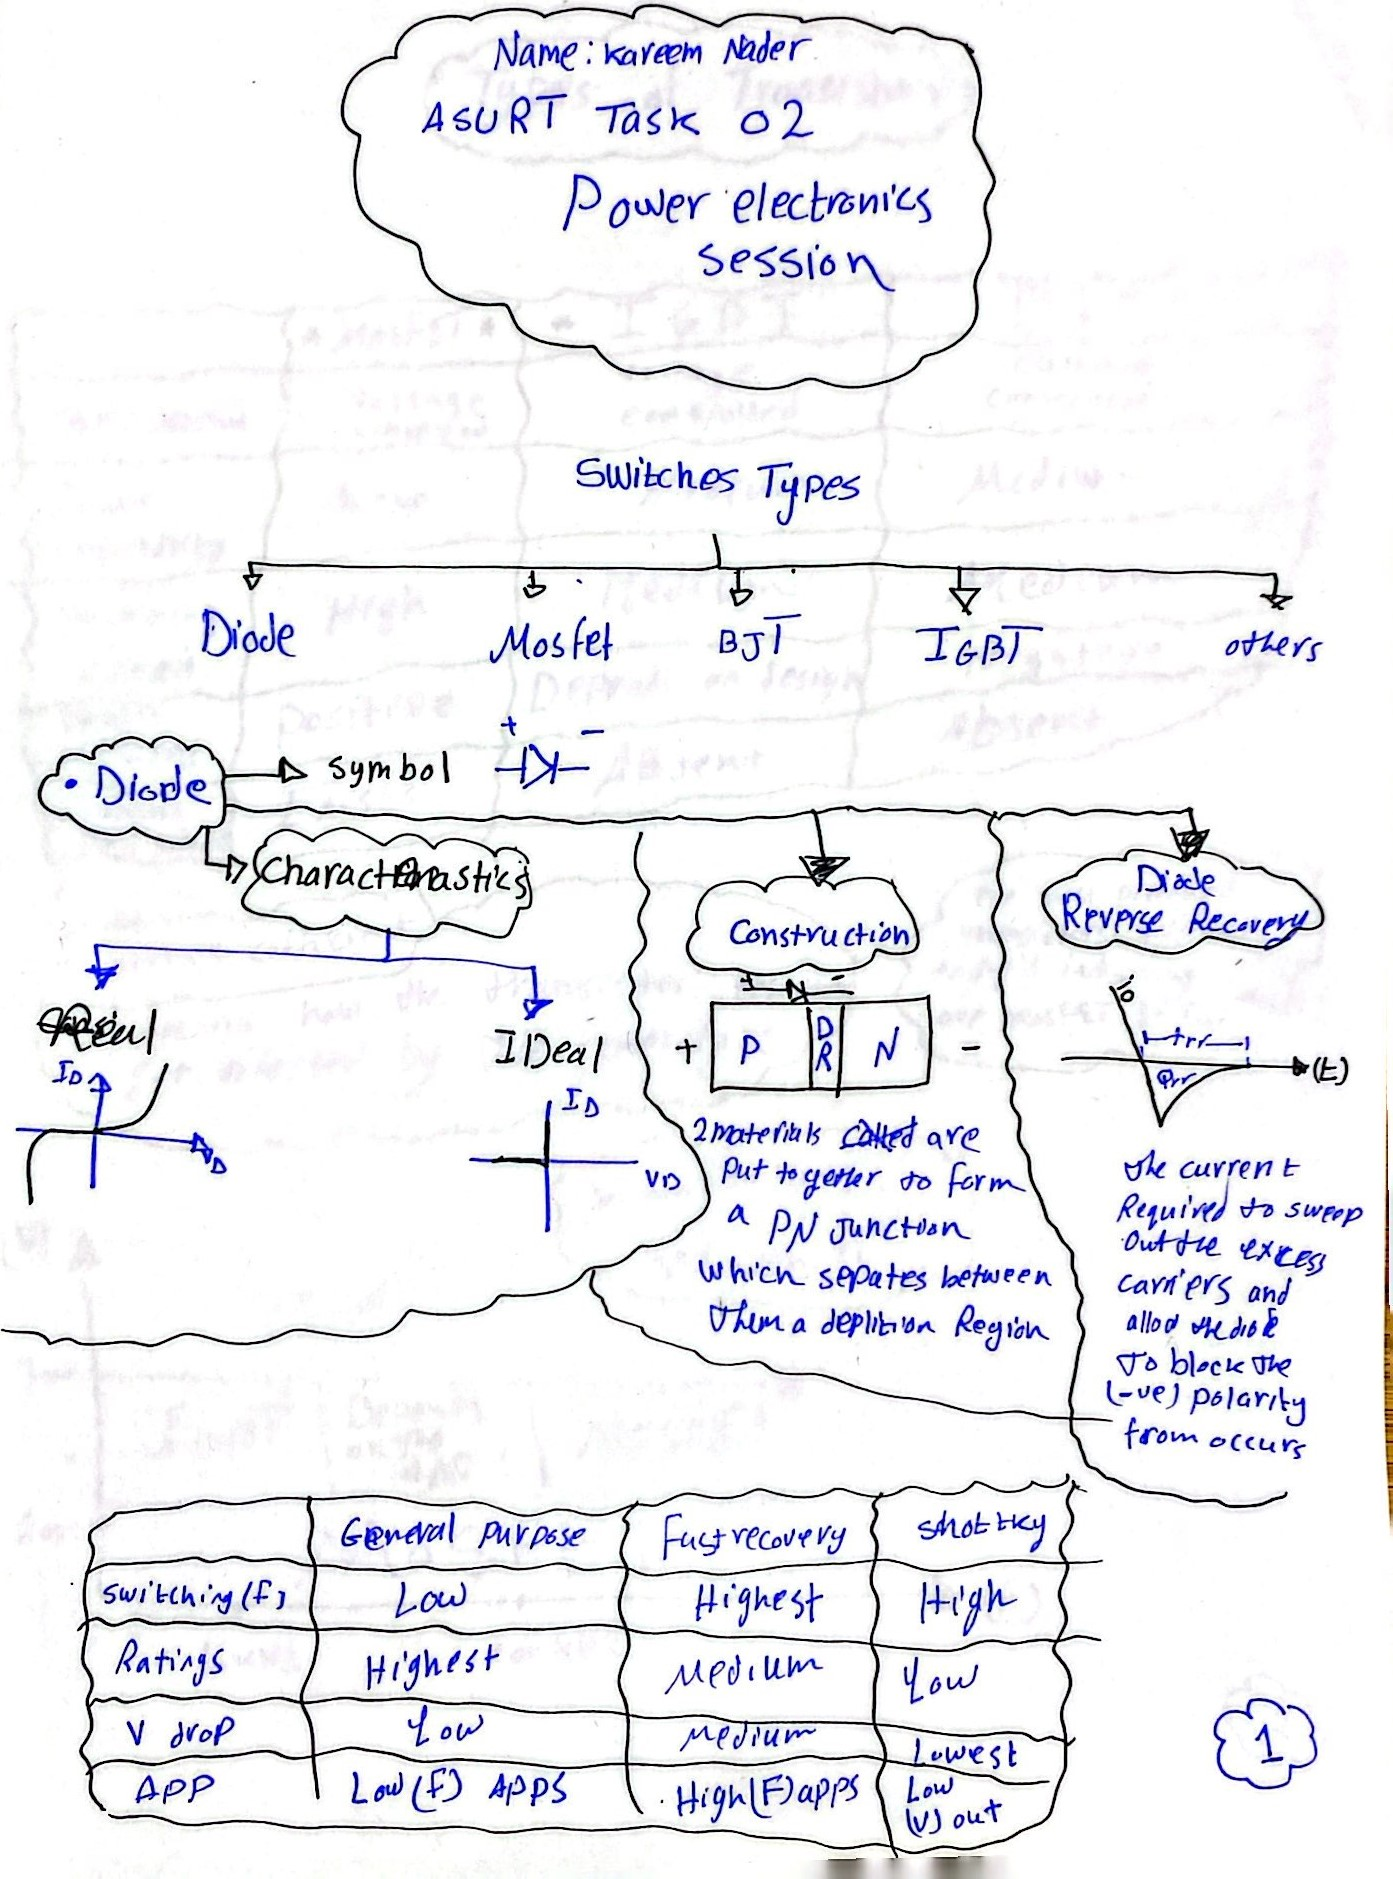 Name: Kareem Nader
ASURT Task 02
Power electronics
session
Switches Types
Diode Mosfet BJT IGBT others
• Diode
symbol
+ -
Construction
Diode
Reverse Recovery
Real
ID
VD
IDeal
ID
VD
+ -
+ P DR N -
trr
Qrr
(t)
2 materials are
Put together to form
a PN Junction
which sepates between
them a deplition Region
the current
Required to sweep
out the excess
carriers and
the diode
To block the
(-ve) polarity
from occurs
General Purpose Fast recovery shottky
switching (f) Low Highest High
Ratings Highest Medium Low
V drop Low Medium Lowest
APP Low (f) APPS High (F) apps Low
(V) out
1